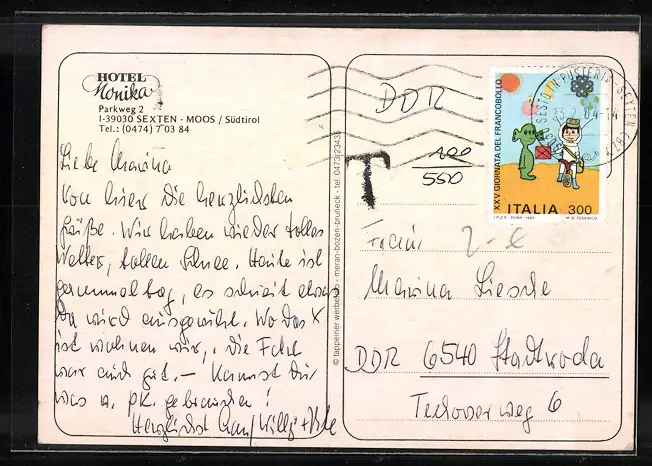 HOTEL
Monika
Parkweg 2
I-39030 SEXTEN - MOOS / Südtirol
Tel.: (0474) 7 03 84
Liebe Marina
Von hier die herzlichsten
Grüße. Wir haben wieder tolles
Wetter, tollen Schnee. Heute ist
es schneit etwas
Da wird ausgeruht. Wo das X
ist wohnen wir, die Fahrt
war auch gut. – Kannst Du
was a. PK. gebrauchen!
Herzlichst Willy +
© tappeiner werbefoto - meran-bozen-bruneck - tel. 0473/23435
DDR
T
100
550
XXV GIORNATA DEL FRANCOBOLLO
ITALIA 300
I.P.Z.S. - ROMA - 1983
SESTO IN PUSTERIA - SEXTEN
Frau
2-€
Marina Liesche
DDR 6540 Stadtroda
Tedower weg 6